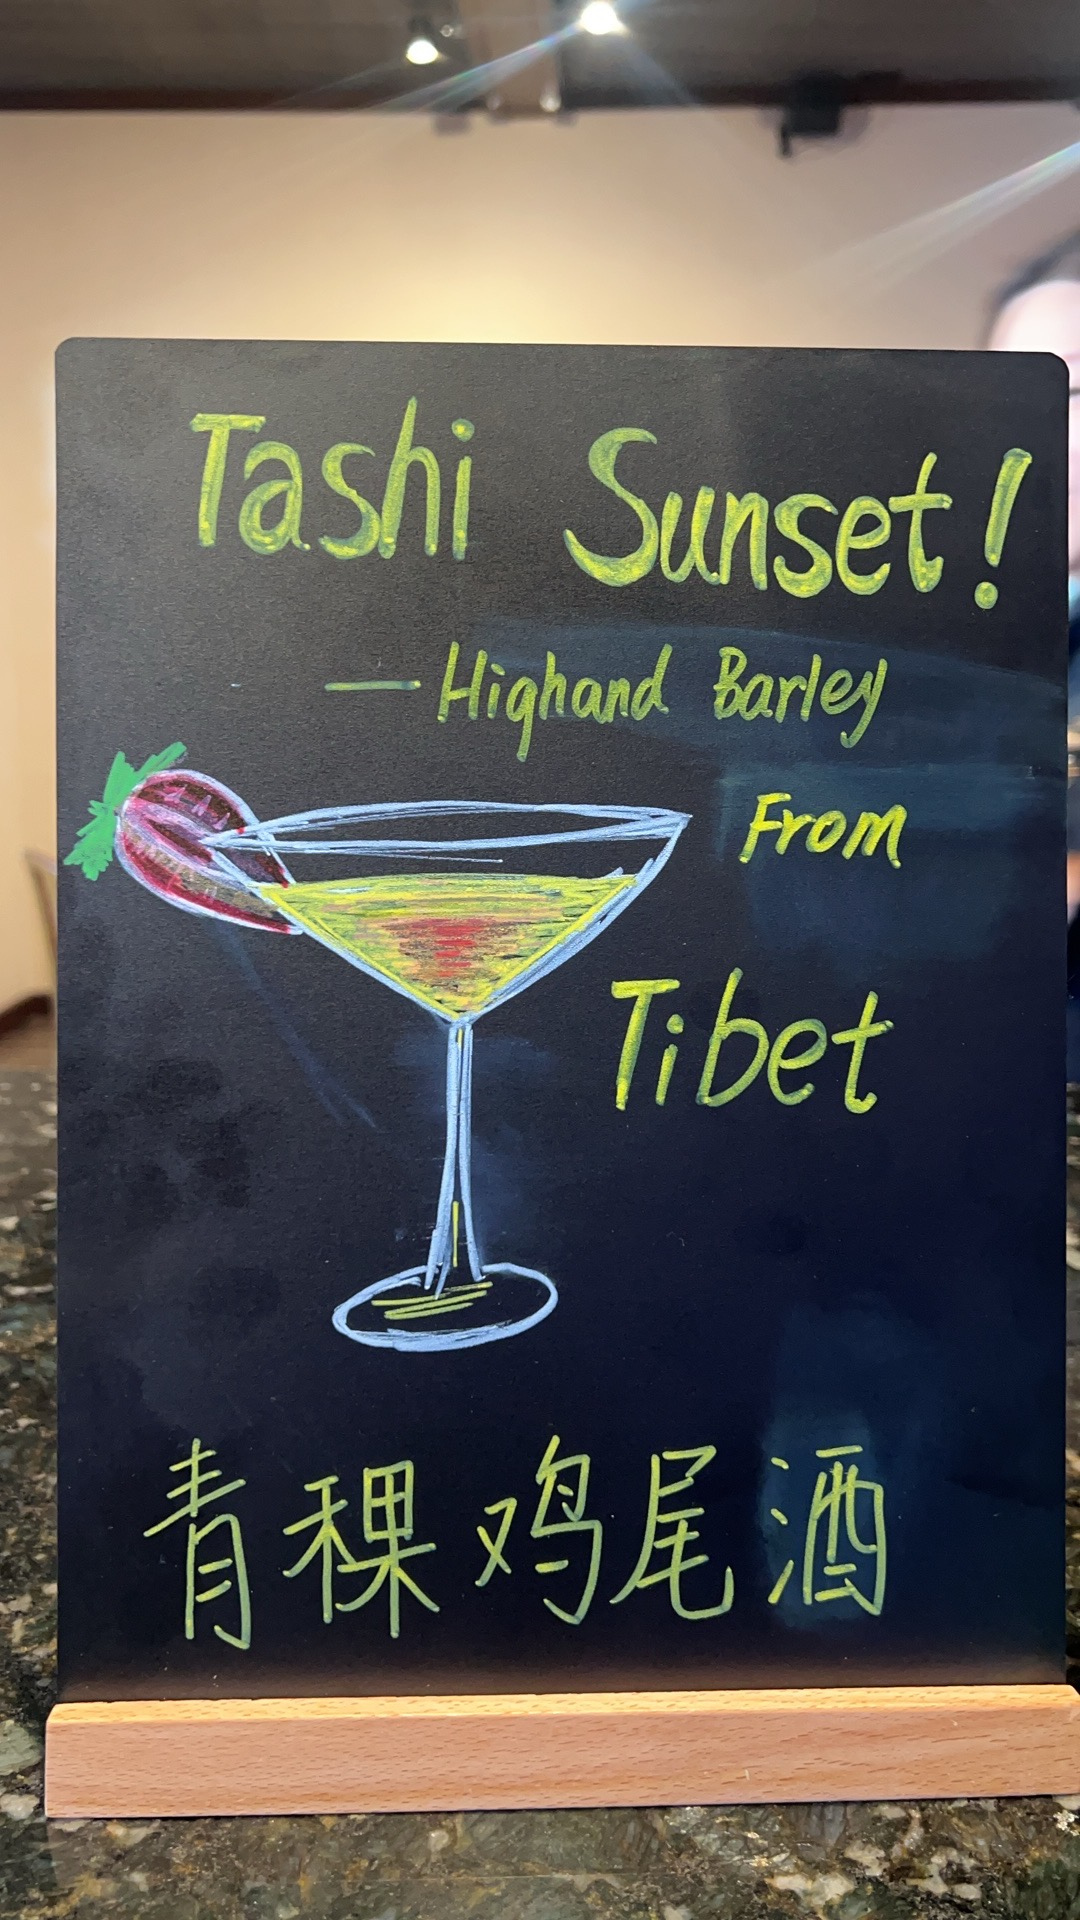 Tashi Sunset!
— Highand Barley
From
Tibet
青稞鸡尾酒